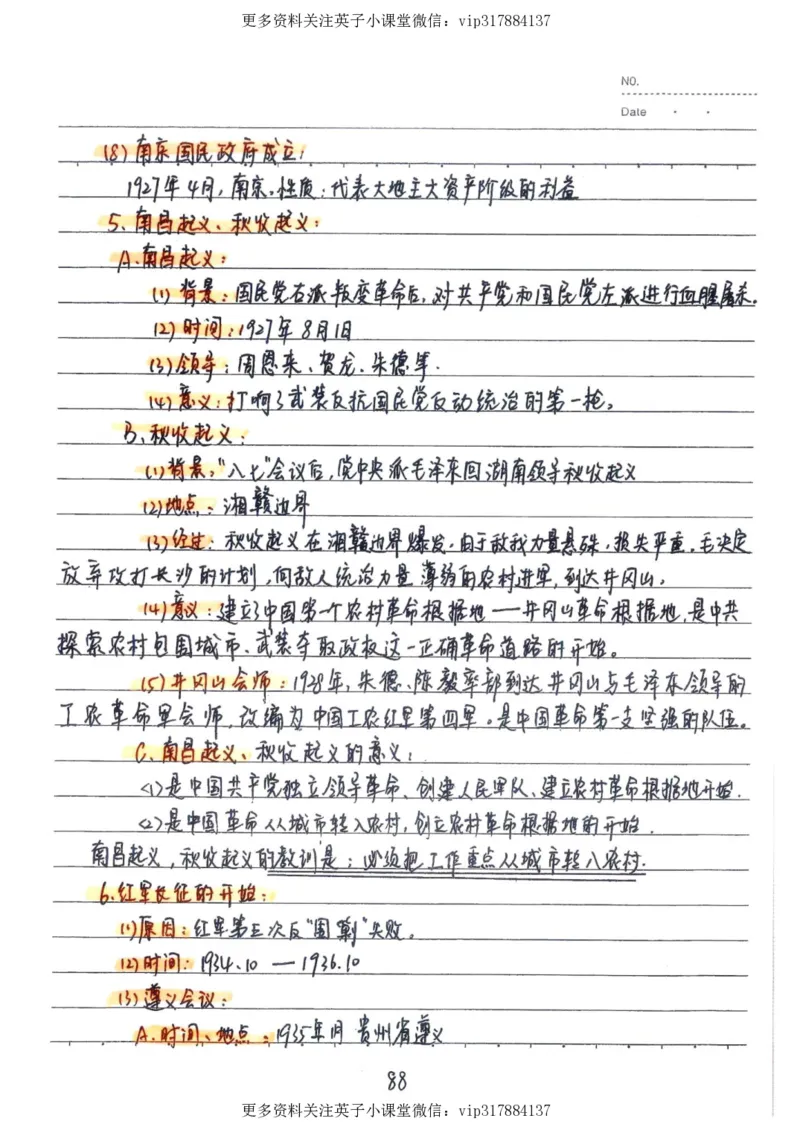 更多资料关注英子小课堂微信：vip317884137
NO.
Date
(8) 南京国民政府成立：
1927年4月，南京。性质：代表大地主大资产阶级的利益
5、南昌起义、秋收起义：
A.南昌起义：
(1) 背景：国民党右派叛变革命后，对共产党和国民党左派进行血腥屠杀。
(2) 时间：1927年8月1日
(3) 领导：周恩来、贺龙、朱德等.
(4) 意义：打响了武装反抗国民党反动统治的第一枪。
B、秋收起义：
(1) 背景："八七"会议后，党中央派毛泽东回湖南领导秋收起义
(2) 地点：湘赣边界
(3) 经过：秋收起义在湘赣边界爆发，由于敌我力量悬殊，损失严重，毛决定
放弃攻打长沙的计划，向敌人统治力量薄弱的农村进军，到达井冈山。
(4) 意义：建立了中国第一个农村革命根据地——井冈山革命根据地，是中共
探索农村包围城市、武装夺取政权这一正确革命道路的开始。
(5) 井冈山会师：1928年，朱德、陈毅率部到达井冈山与毛泽东领导的
工农革命军会师，改编为中国工农红军第四军。是中国革命第一支坚强的队伍。
C、南昌起义、秋收起义的意义：
<1>是中国共产党独立领导革命、创建人民军队、建立农村革命根据地开始.
<2>是中国革命从城市转入农村，创立农村革命根据地的开始.
南昌起义，秋收起义的教训是：必须把工作重点从城市转入农村.
6.红军长征的开始：
(1) 原因：红军第五次反"围剿"失败。
(2) 时间：1934.10 — 1936.10
(3) 遵义会议：
A.时间、地点：1935年1月 贵州省遵义
88
更多资料关注英子小课堂微信：vip317884137